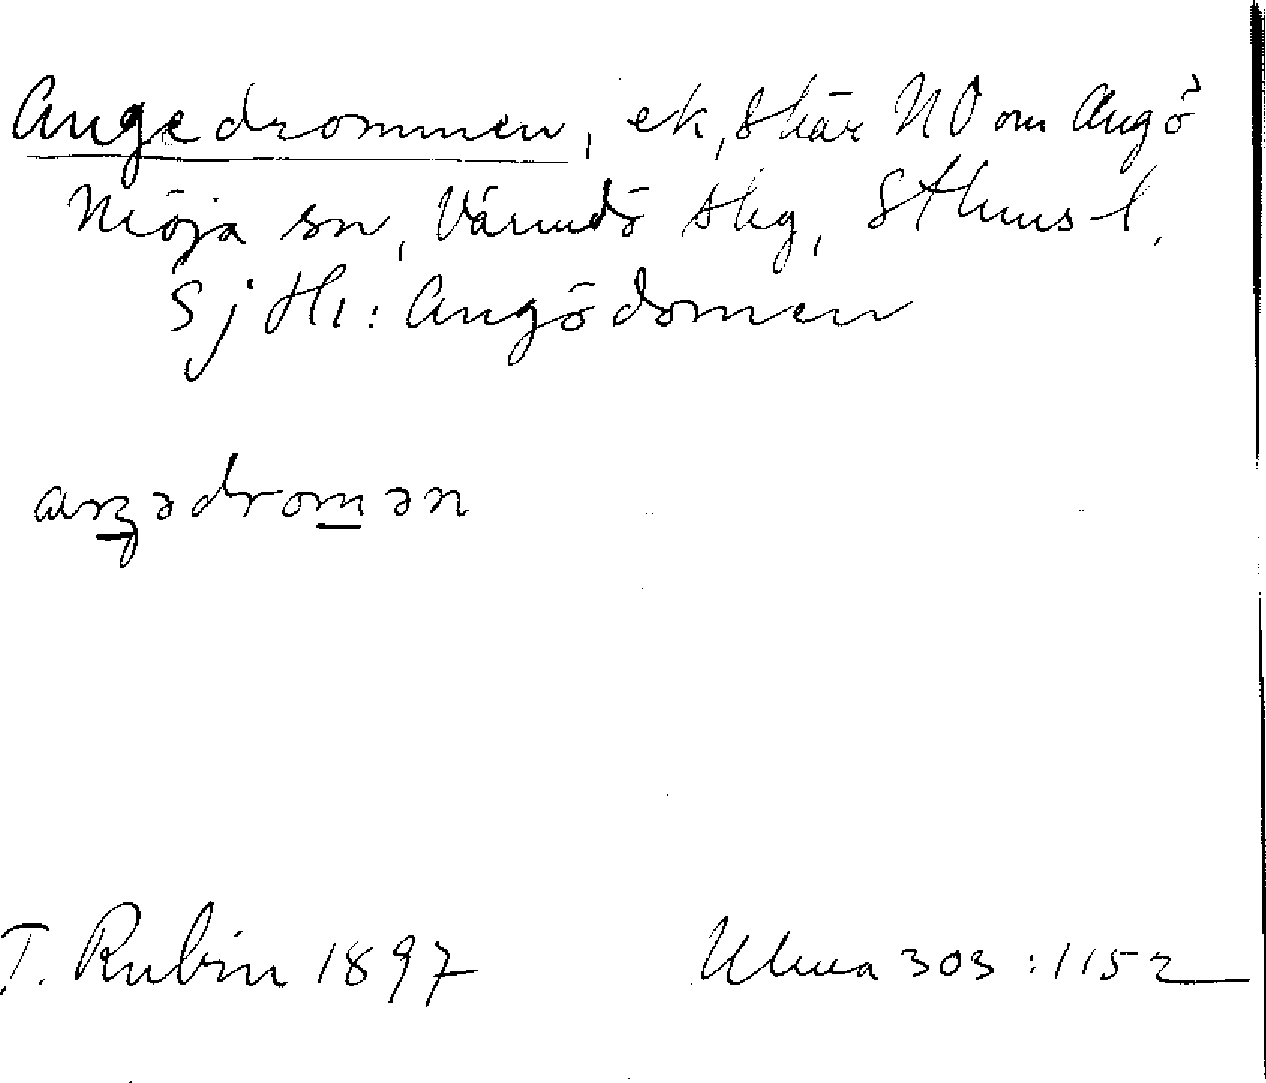 Angedrommen, ek, skär NO om Angö
Möja sn, Värmdö skg, Sthms l.
Sjk1: Angödomen
aŋədromən
T. Rubin 1897 Ulma 303:1152